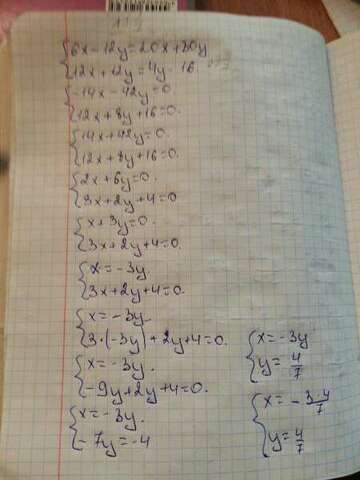 6x-12y=20x+30y
12x+12y=4y-16
-14x-42y=0
12x+8y+16=0.
14x+42y=0.
12x+8y+16=0.
2x+6y=0.
3x+2y+4=0
x+3y=0.
3x+2y+4=0.
x=-3y.
3x+2y+4=0.
x=-3y.
3·(-3y)+2y+4=0.
x=-3y.
-9y+2y+4=0.
x=-3y.
-7y=-4
x=-3y
y=4/7
x=-3 4/7
y=4/7